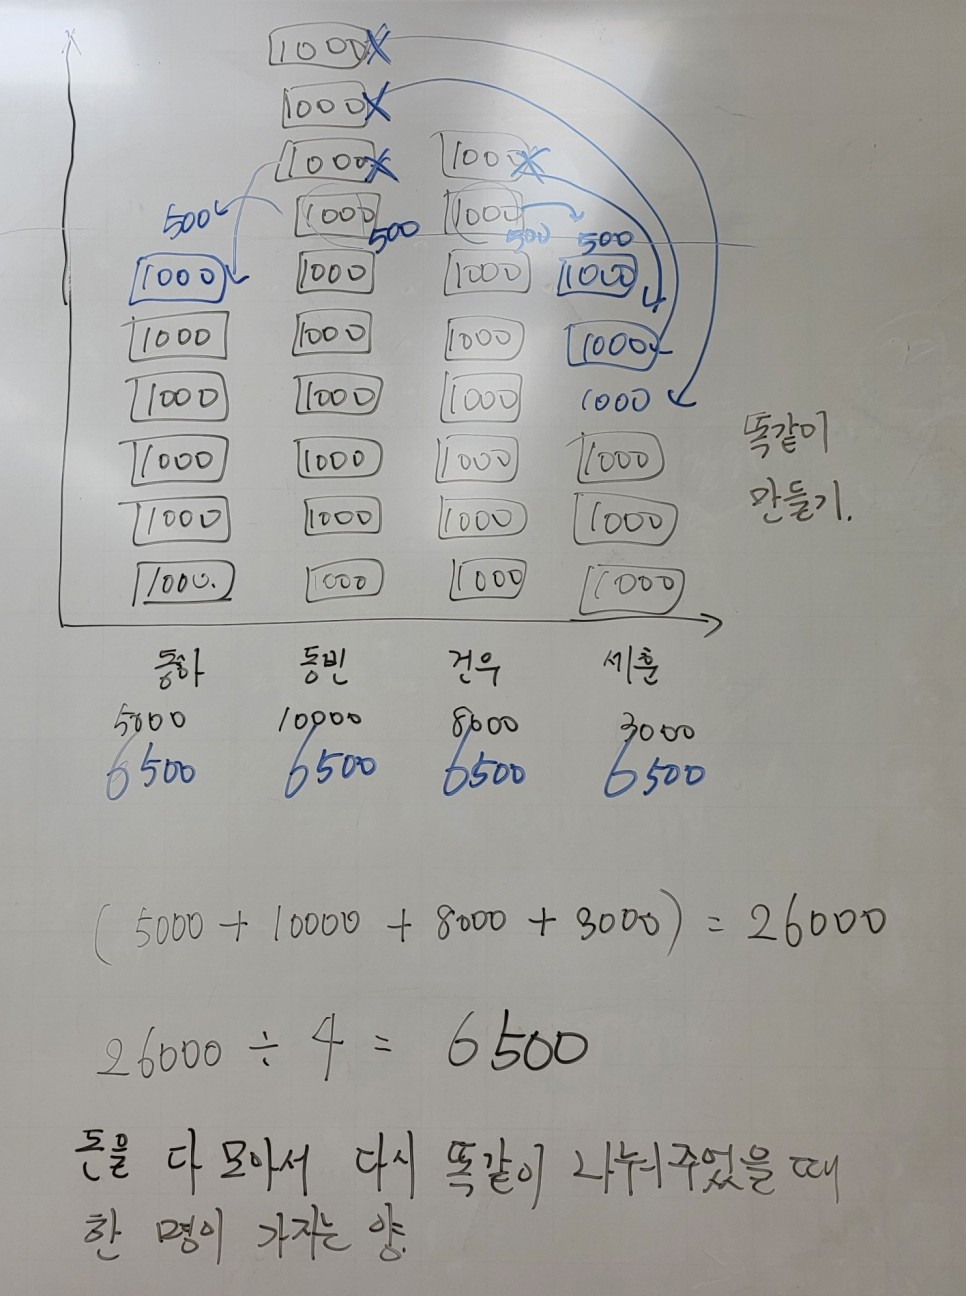 1000
1000
1000 1000
500 1000 500 1000 500 500
1000 1000 1000 1000
1000 1000 1000 1000
1000 1000 1000 1000
1000 1000 1000 1000
1000 1000 1000 1000
1000. 1000 1000 1000
똑같이
만들기.
동하 동빈 건우 세훈
5000 10000 8000 3000
6500 6500 6500 6500
(5000 + 10000 + 8000 + 3000) = 26000
26000 ÷ 4 = 6500
돈을 다 모아서 다시 똑같이 나눠주었을 때
한 명이 가지는 양.